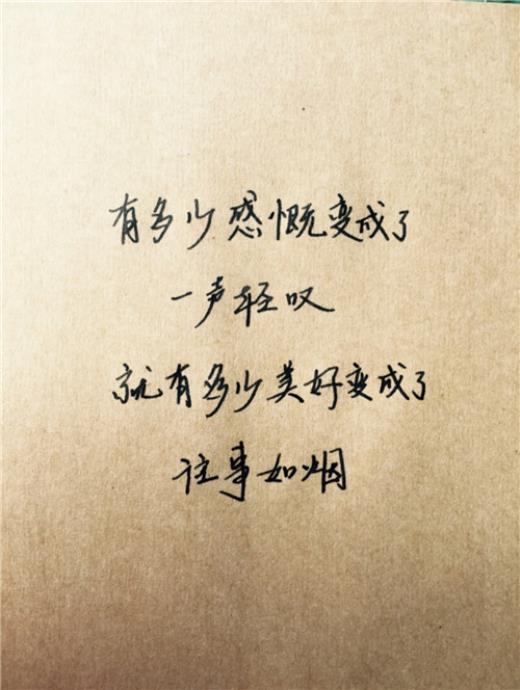 有多少感慨变成了
一声轻叹
就有多少美好变成了
往事如烟